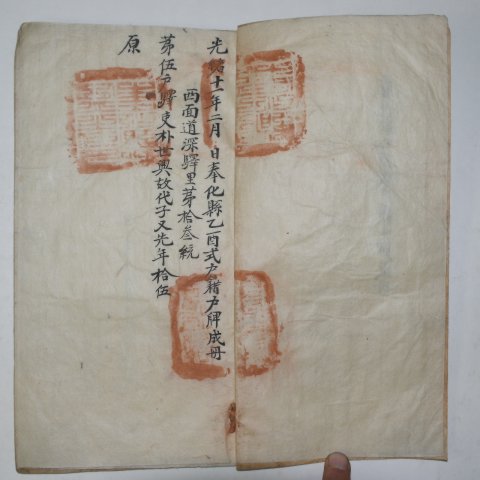 光緖十一年二月 日奉化縣乙酉式戶籍戶牌成冊
西面道深驛里苐拾叄統
苐伍戶驛吏朴世興故代子又先年拾伍
原